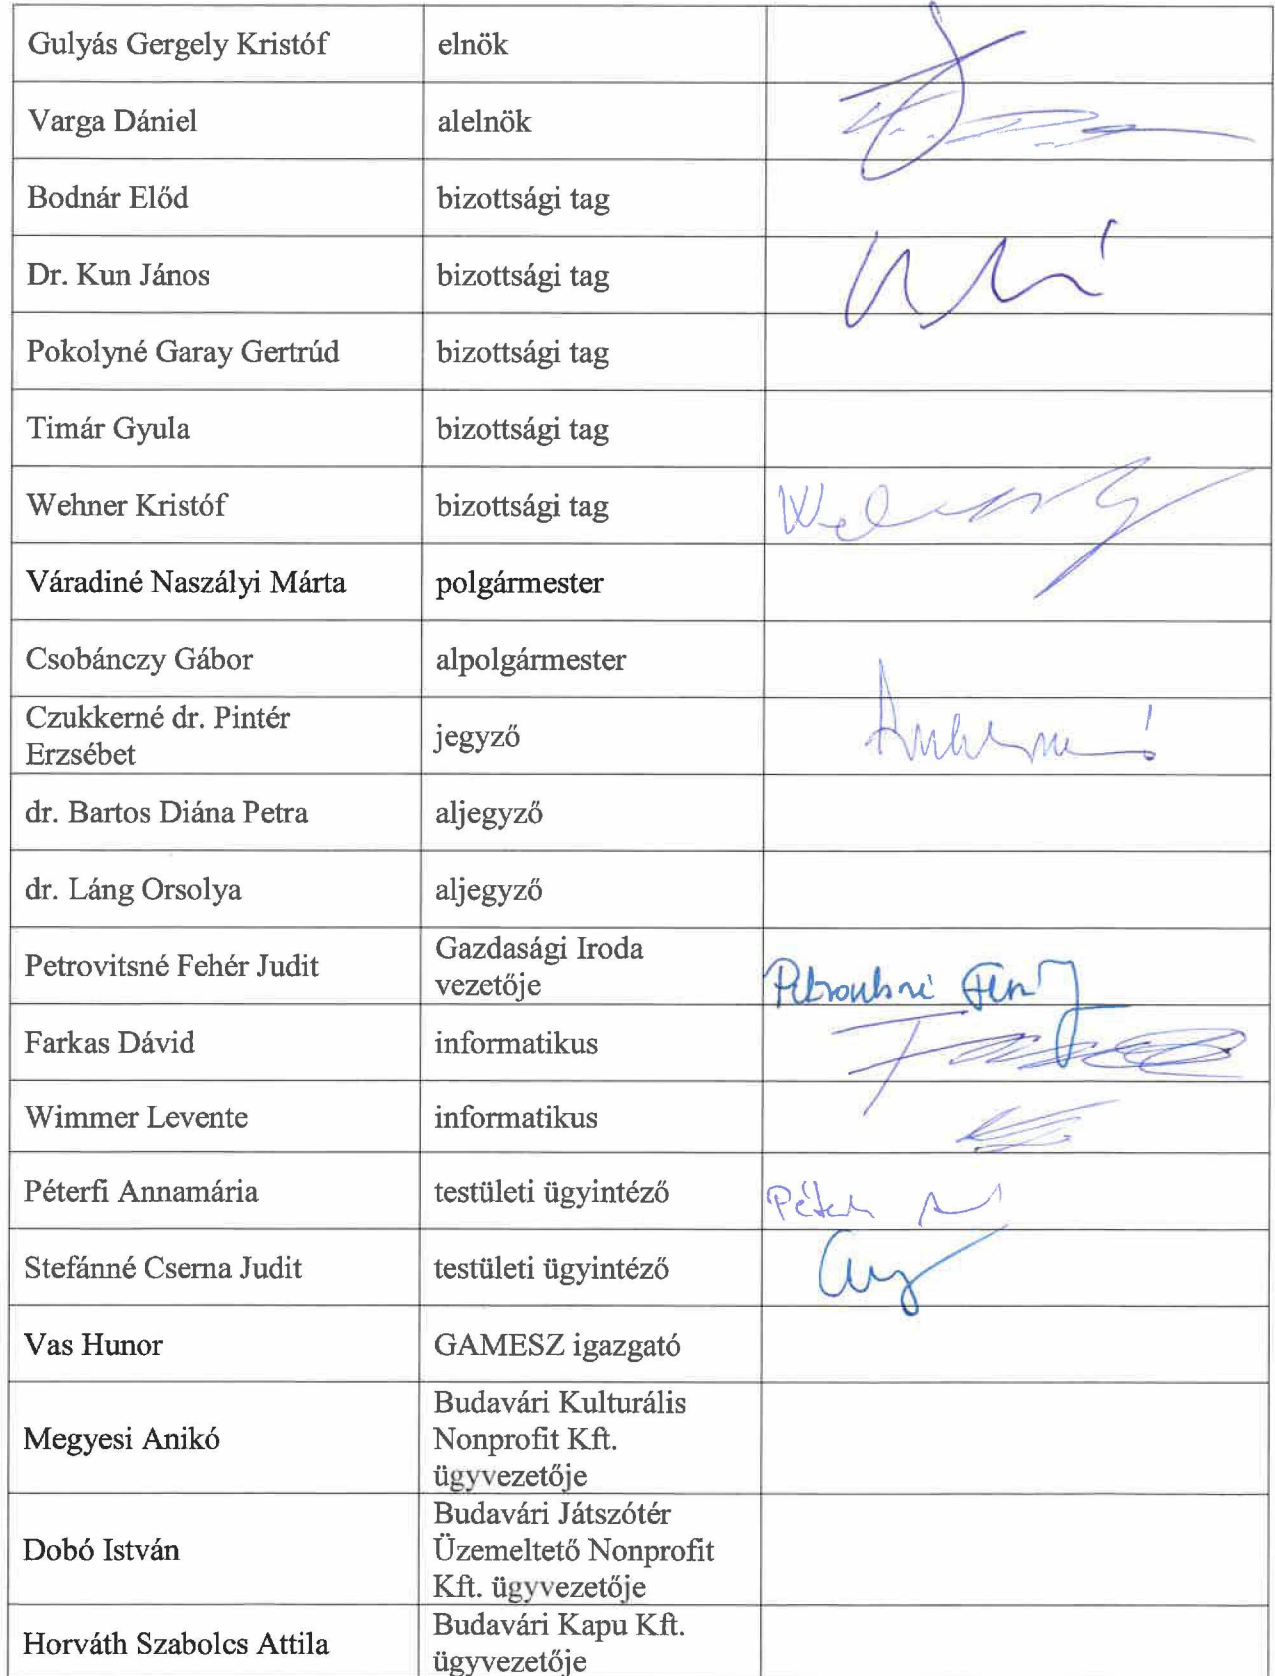 Gulyás Gergely Kristóf elnök
Varga Dániel alelnök
Bodnár Előd bizottsági tag
Dr. Kun János bizottsági tag
Pokolyné Garay Gertrúd bizottsági tag
Timár Gyula bizottsági tag
Wehner Kristóf bizottsági tag
Váradiné Naszályi Márta polgármester
Csobánczy Gábor alpolgármester
Czukkerné dr. Pintér
Erzsébet
jegyző
dr. Bartos Diána Petra aljegyző
dr. Láng Orsolya aljegyző
Petrovitsné Fehér Judit
Gazdasági Iroda
vezetője
Farkas Dávid informatikus
Wimmer Levente informatikus
Péterfi Annamária testületi ügyintéző
Stefánné Cserna Judit testületi ügyintéző
Vas Hunor GAMESZ igazgató
Megyesi Anikó
Budavári Kulturális
Nonprofit Kft.
ügyvezetője
Dobó István
Budavári Játszótér
Üzemeltető Nonprofit
Kft. ügyvezetője
Horváth Szabolcs Attila
Budavári Kapu Kft.
ügyvezetője